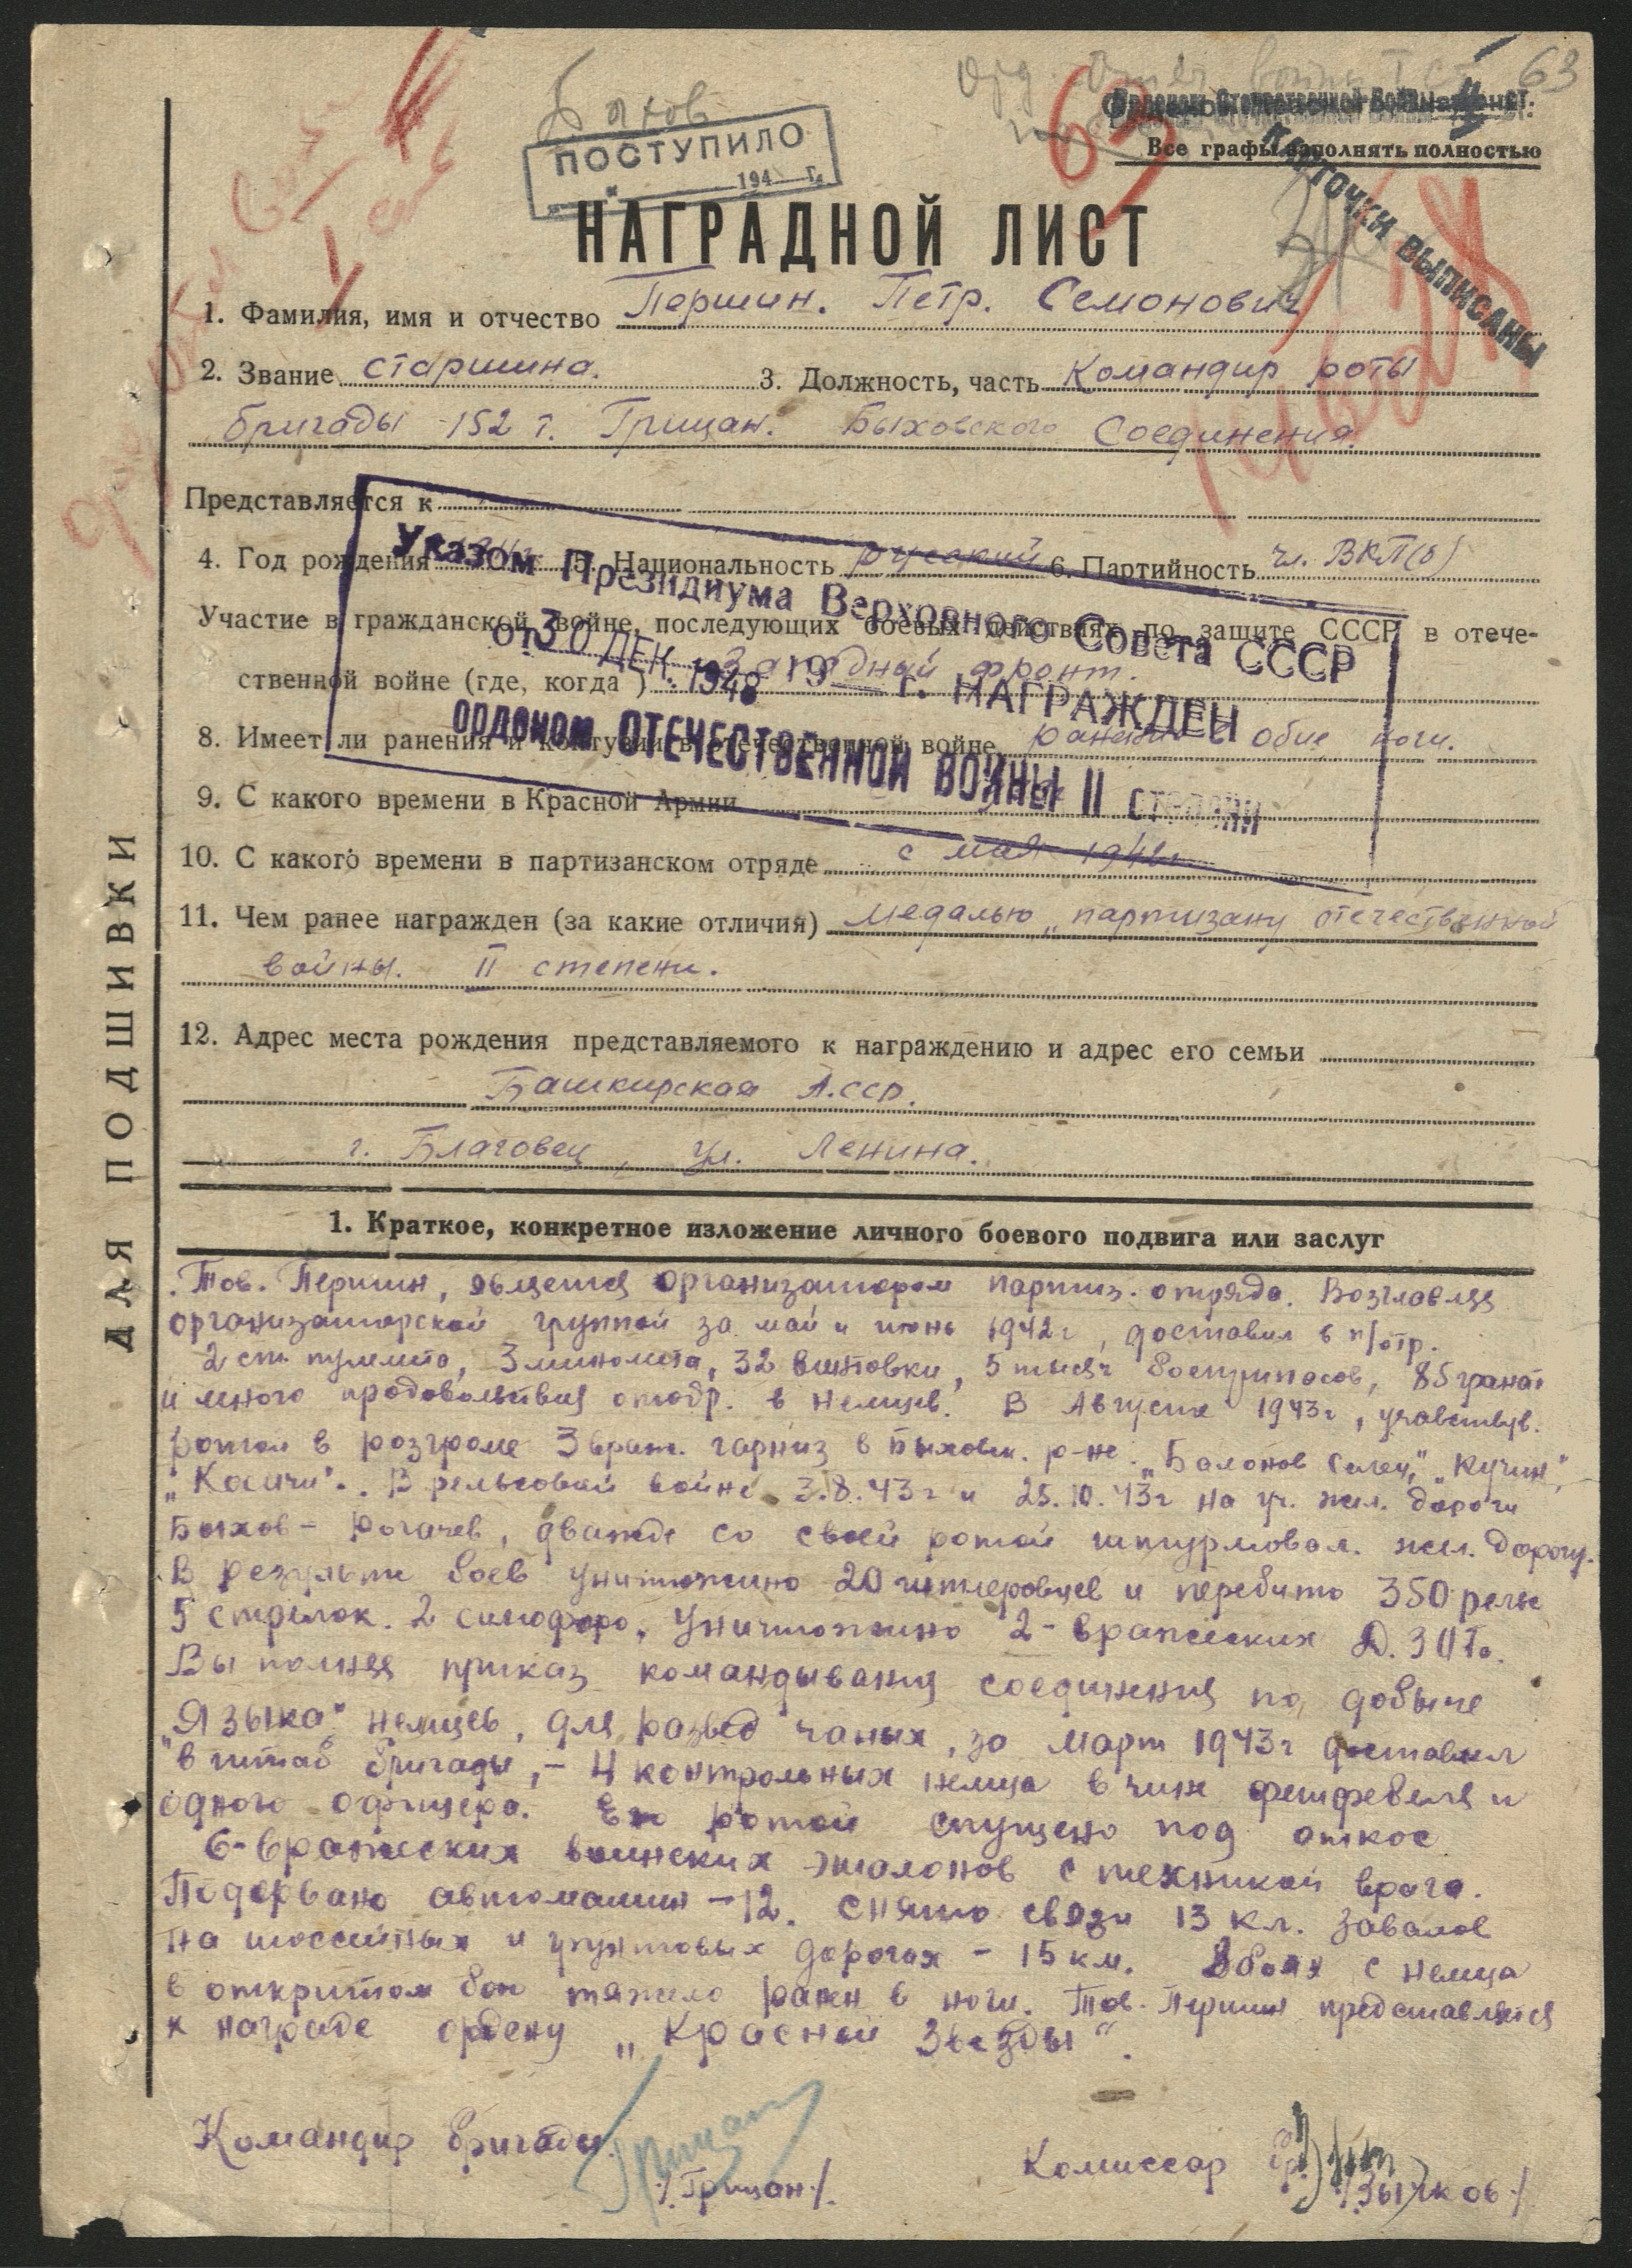 63
Быхов
ПОСТУПИЛО
194 г.
63
Все графы заполнять полностью
КАРТОЧКИ ВЫПИСАНЫ
НАГРАДНОЙ ЛИСТ
1. Фамилия, имя и отчество Першин. Петр. Семонович
2. Звание старшина. 3. Должность, часть Командир роты
бригады 152 т. Грицан. Быховского Соединения.
Представляется к
4. Год рождения 5. Национальность русский 6. Партийность чл. ВКП(б)
Указом Президиума Верховного Совета СССР
от 30 ДЕК. 1948 19 г. НАГРАЖДЕН
ОРДЕНОМ ОТЕЧЕСТВЕННОЙ ВОЙНЫ II СТЕПЕНИ
Участие в гражданской войне, последующих боевых действиях по защите СССР в отече-
ственной войне (где, когда) Западный фронт.
8. Имеет ли ранения и контузии в отечественной войне ранение в обие ноги.
9. С какого времени в Красной Армии
10. С какого времени в партизанском отряде с мая 1942г
11. Чем ранее награжден (за какие отличия) медалью „партизану отечественной
войны. II степени.
12. Адрес места рождения представляемого к награждению и адрес его семьи
Башкирская А.сср.
г. Благовещ, ул. Ленина.
ДЛЯ ПОДШИВКИ
1. Краткое, конкретное изложение личного боевого подвига или заслуг
Тов. Першин, явцется организатором партиз. отряда. Возглавляя
организаторской группой за май и июнь 1942г, доставил в п/отр.
2 ст. пулемета, 3 миномета, 32 винтовки, 5 тысяч боеприпасов, 85 гранат
и много продовольствия отобр. в немцев. В Августе 1943г, участвув.
ротой в розгроме 3 враж. гарниз в Быховск. р-не: „Балонов Селец", „Кучин",
„Косичи". В рельсовой войне 3.8.43г и 25.10.43г на уч. жел. дороги
Быхов - Рогачев, дважды со своей ротой штурмовал. жел. дорогу.
В результи боев уничтожено 20 гитлеровцев и перебито 350 рельс
5 стрелок. 2 симофора. Уничтожино 2 - вражеских Д.ЗОТа.
Выполняя приказ командывания соединения по добыче
„Языка" немцев, для развед чаных, за март 1943г доставил
в штаб бригады, - 4 контрольных немца в чине фельфебеля и
одного офицера. Его ротой спущено под откос
6 - вражеских воинских эшалонов с техникой врага.
Подорвано автомашин - 12. Снято связи 13 кл. завалов
на шоссейных и грунтовых дорогах - 15 км. В боях с немца
в открытом бою тяжело ранен в ноги. Тов. Першин представляется
к награде ордену „Красной Звезды".
Командир бригады Грицан
/Грицан/.
Комиссар бр.